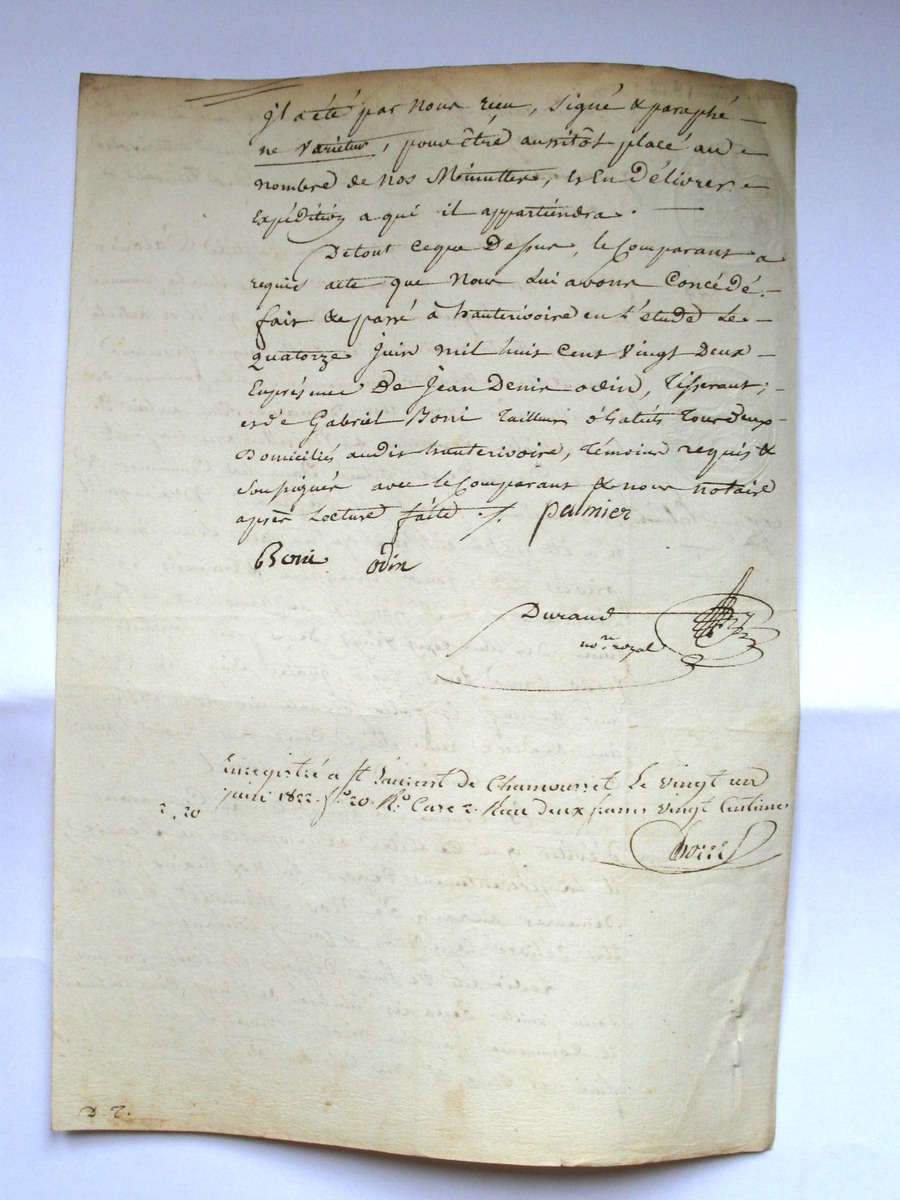 y'l a été par Nous rieu, Signé & paraphé —
ne Varietur, pour être aussitôt placé au —
nombre de Nos Minuttes, & En Délivrer —
Expédition a qui il appartiendra. —
De tout ce que Dessus, le Comparant a
requis acte que Nous Lui avons Concédé. —
fait & passé à hauterivoire en L'étude Le —
quatorze Juin mil huit Cent Vingt Deux —
Enprésence De Jean Denis odin, Tisserant,
et de Gabriel Boni Tailleur d'habits Tous deux —
Domiciliés audit hauterivoire, témoins requis &
Soussignés avec le Comparant & nous notaire
après Lecture faite ./. palmier
Boni odin
Durand
no.re royal
Enregistré a St Laurent de Chamousset Le vingt un
juin 1822. fo. 20. Ro. Case 2. Reçu deux francs vingt Centimes
2,20
D. T.